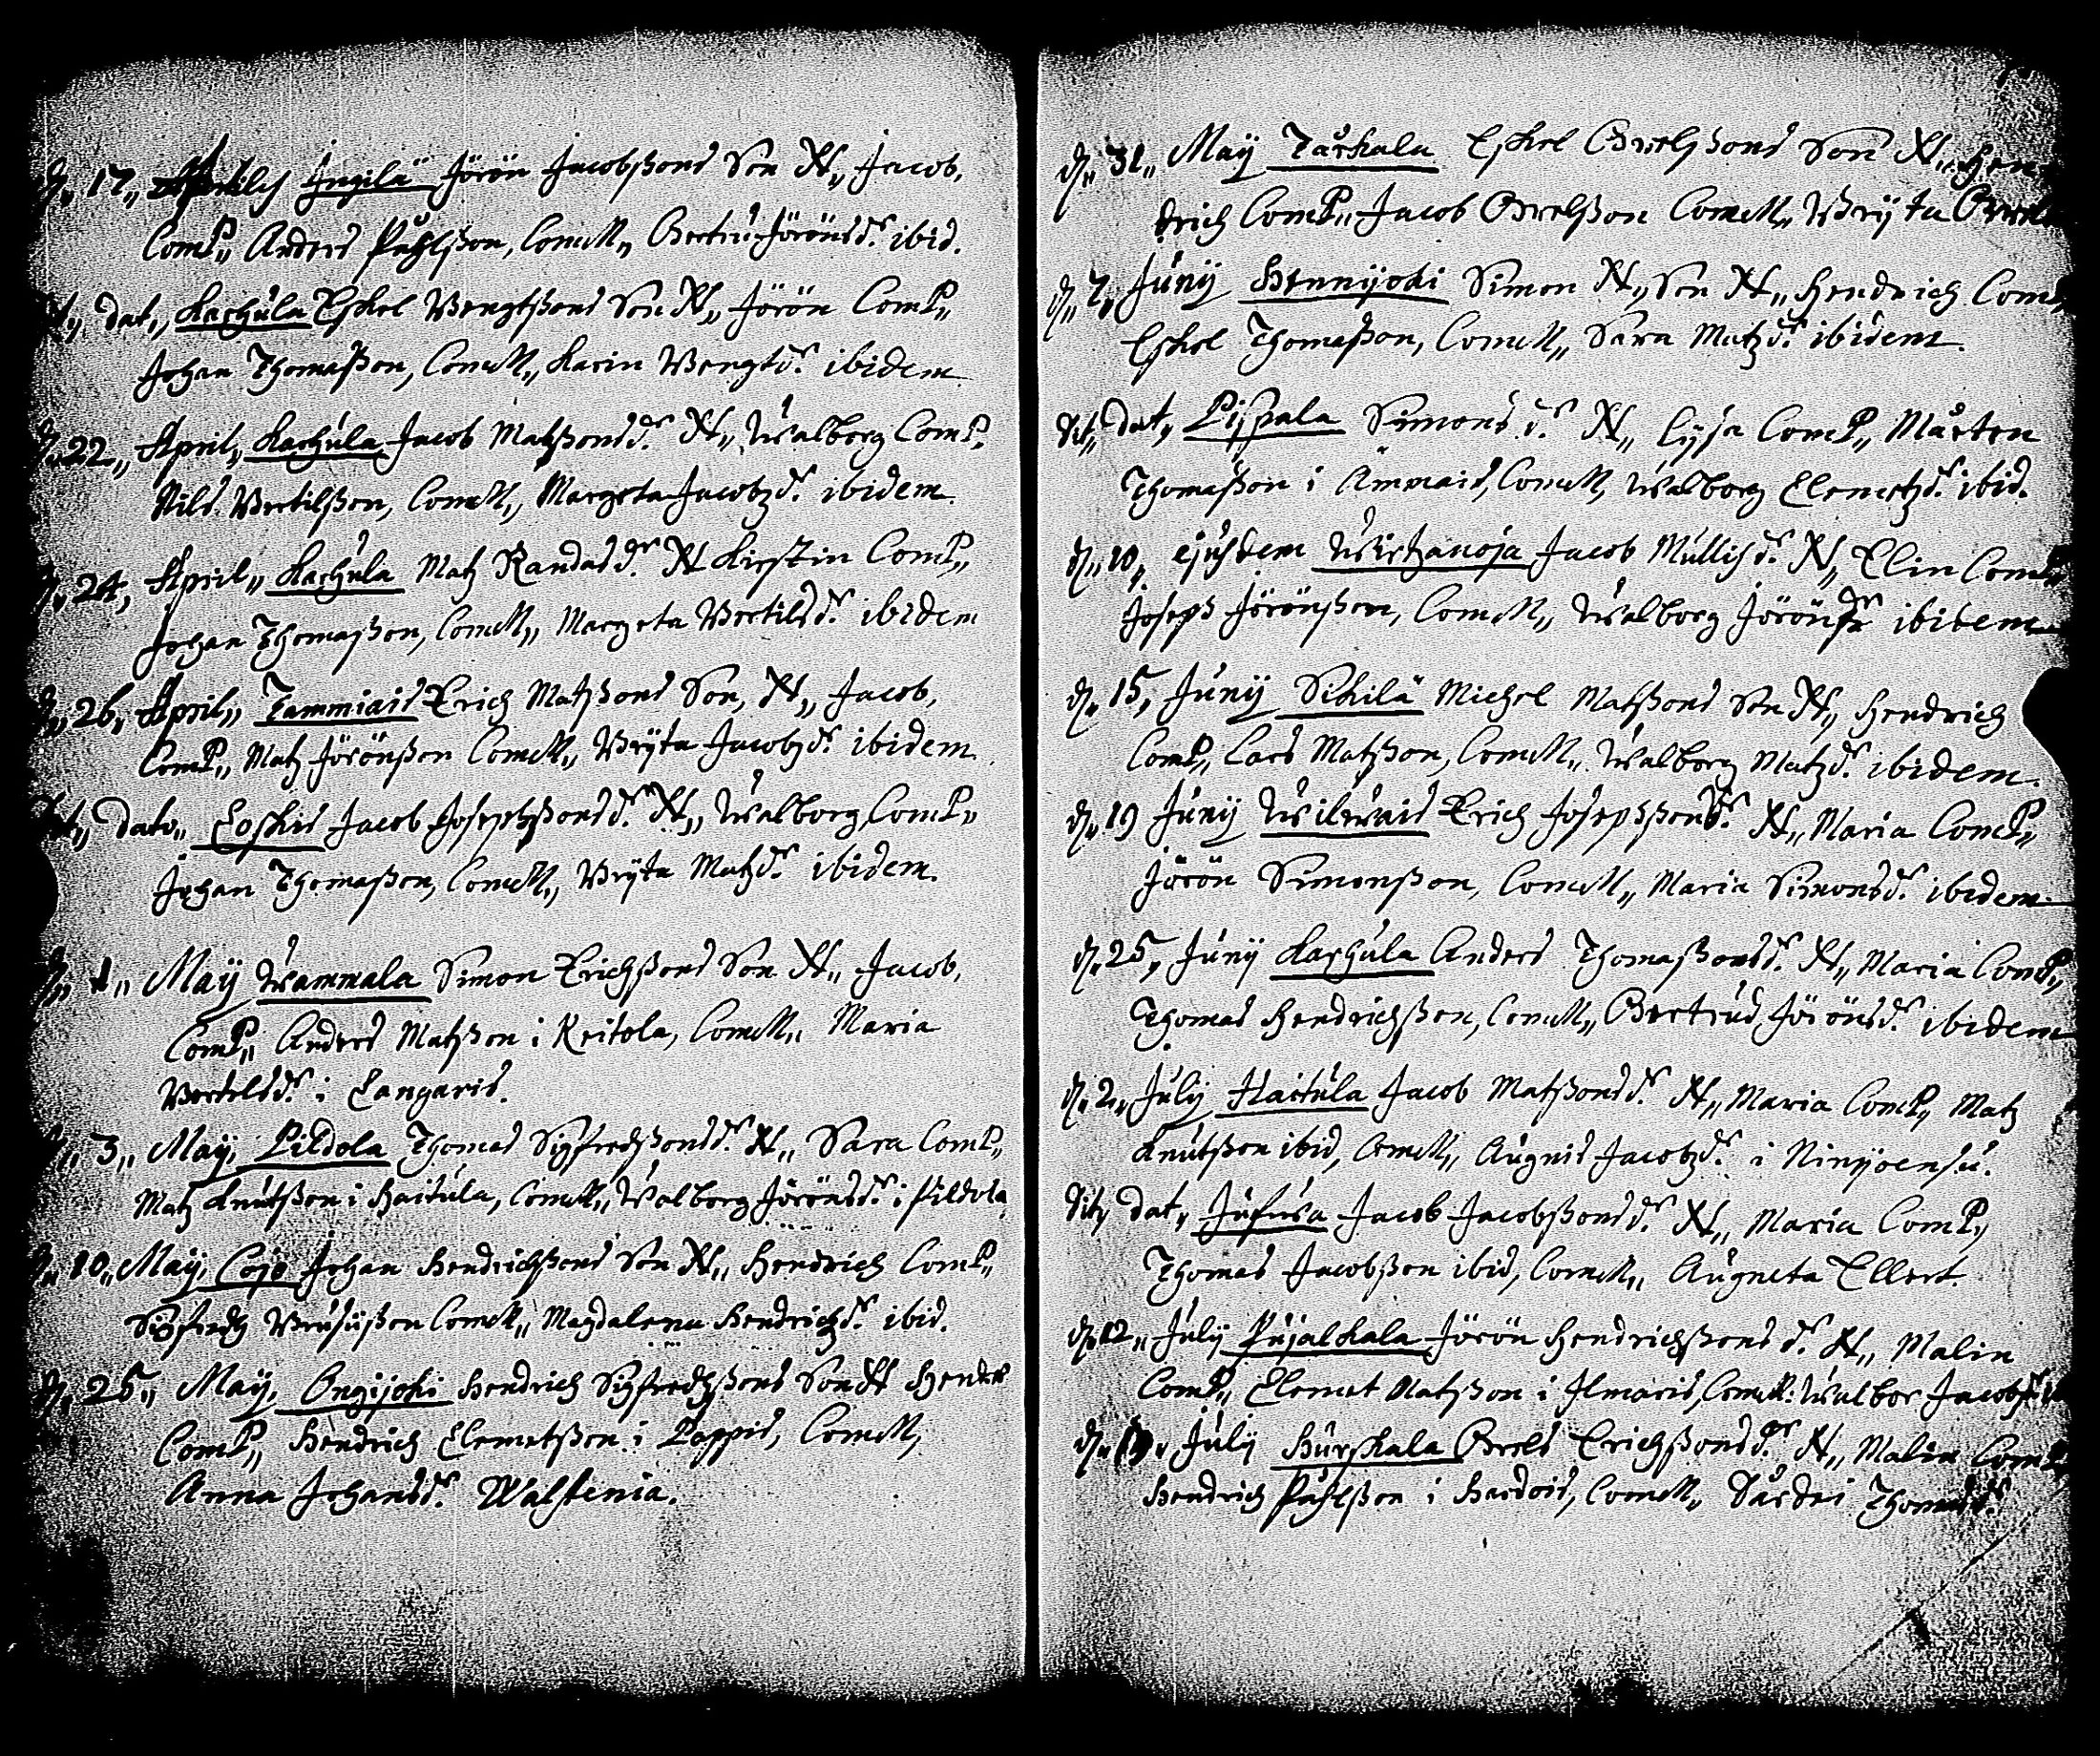 d. 17,, Aprilis Ingilä Jörön Jacobßons Son N,, Jacob,
ComP,, Anders Påhlßon, ComM,, Bertru Jörönsdr. ibid.
dat,, Karhula Eskel Bengtßons Son N,, Jörön ComP,,
Johan Thomaßon, ComM,, Karin Bengtdr. ibidem
d. 22,, April,, Karhula Jacob Matzßons dr. N,, Walborg ComP.
Nils Bertilßon, ComM,, Margeta Jacobzdr. ibidem.
d. 24, April,, Karhula Matz Randas dr. N Kirstin ComP,,
Johan Thomaßon, ComM,, Margeta Bertilsdr. ibidem
d. 26, April,, Tammiais Erich Matzßons Son, N,, Jacob,
ComP,, Matz Jörönßon ComM,, Bryta Jacobzdr. ibidem.
dato,, Eoskis Jacob Josephßons dr. N,, Walborg ComP,,
Johan Thomaßon, ComM,, Bryta Matzdr. ibidem.
d. 1,, Maÿ Wammala Simon Erichßons Son N,, Jacob,
ComP,, Anders Matzßon i Keitola, ComM,, Maria
Bertelsdr. i Langaris.
d. 3,, Maÿ, Pildola Thomas Sigfredzßons dr. N,, Sara ComP,,
Matz Knutßon i Haitula, ComM,, Walborg Jörönsdr. i Pildola
d. 10,, Maÿ, Cojo Johan Hendrichßons Son N,, Hendrich ComP,,
Sigfredz ComM,, Magdalena Hendrichzdr. ibid.
d. 25,, Maÿ, Ongijoki Hendrich Sigfredzßons Son N
ComP,, Hendrich Clemetßon i Lappis, ComM,
Anna Johansdr. Walstenia.
d. 31,, Maÿ Tårkala Eskel Grelsßons Son N,, Hen
drich ComP,, Jacob Grelsßon ComM,, Bryta
d. 7, Junÿ Hennijoki Simon N,, Son N,, Hendrich Com
Eskel Thomaßon, ComM,, Sara Matzdr. ibidem.
Dit,, dat, Pispala Simons dr. N,, Lijsa ComP,, Mårten
Thomaßon i Ammais, ComM, Walborg Clemetzdr. ibid.
d. 10,, ejusdem Wirtzanoja Jacob Mullis dr. N,, Elin Com
Joseph Jörönßon, ComM,, Walborg Jöröns ibidem
d. 15, Junÿ Sikilä Michel Matzßons Son N,, Hendrich
ComP,, Lars Matzßon, ComM,, Walborg Matzdr. ibidem.
d. 19 Junÿ Wilwais Erich Josephßons dr. N,, Maria ComP,,
Jörön Simonßon, ComM,, Maria Simonsdr. ibidem.
d. 25, Junÿ Karhula Anders Thomaßons dr. N,, Maria ComP,,
Thomas Hendrichßon, ComM,, Bertrud Jörönsdr. ibidem
d. 2,, Julÿ Haitula Jacob Matzßons dr. N,, Maria ComP,, Matz
Knutßon ibid, ComM,, Augnis Jacobzdr. i Ninijoensu.
Dit,, dat, Jufwa Jacob Jacobßons dr. N,, Maria ComP,,
Thomas Jacobßon ibid, ComM,, Augneta Ellert.
d. 12,, Julÿ Pujalkala Jörön Hendrichßons dr. N,, Malin
ComP,, Clemet Matzßon i Ilmaris, ComM. Walbor
d. 19, Julÿ Hurskala Grels Erichßons dr. N,, Malin Com
Hendrich Påhlßon i Hardois, ComM,,